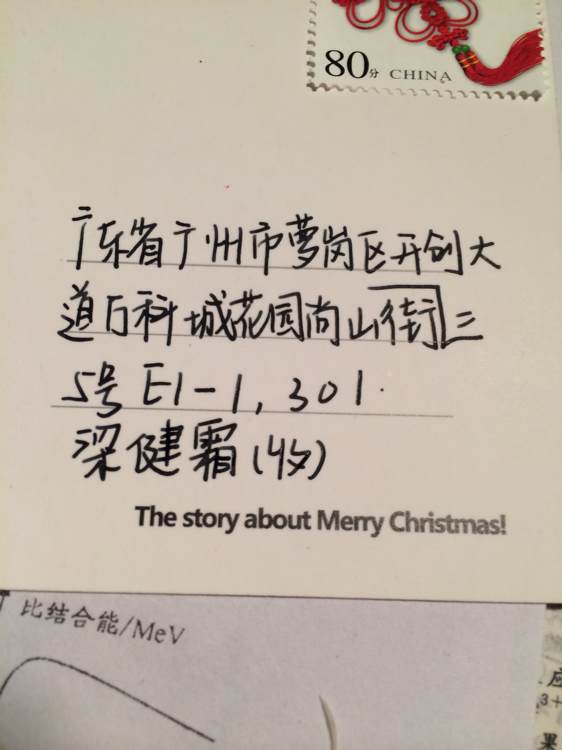 80分 CHINA
广东省广州市萝岗区开创大
道万科城花园尚山街三
5号E1-1,301.
梁健霜(收)
The story about Merry Christmas!
比结合能/MeV
应
3+
果